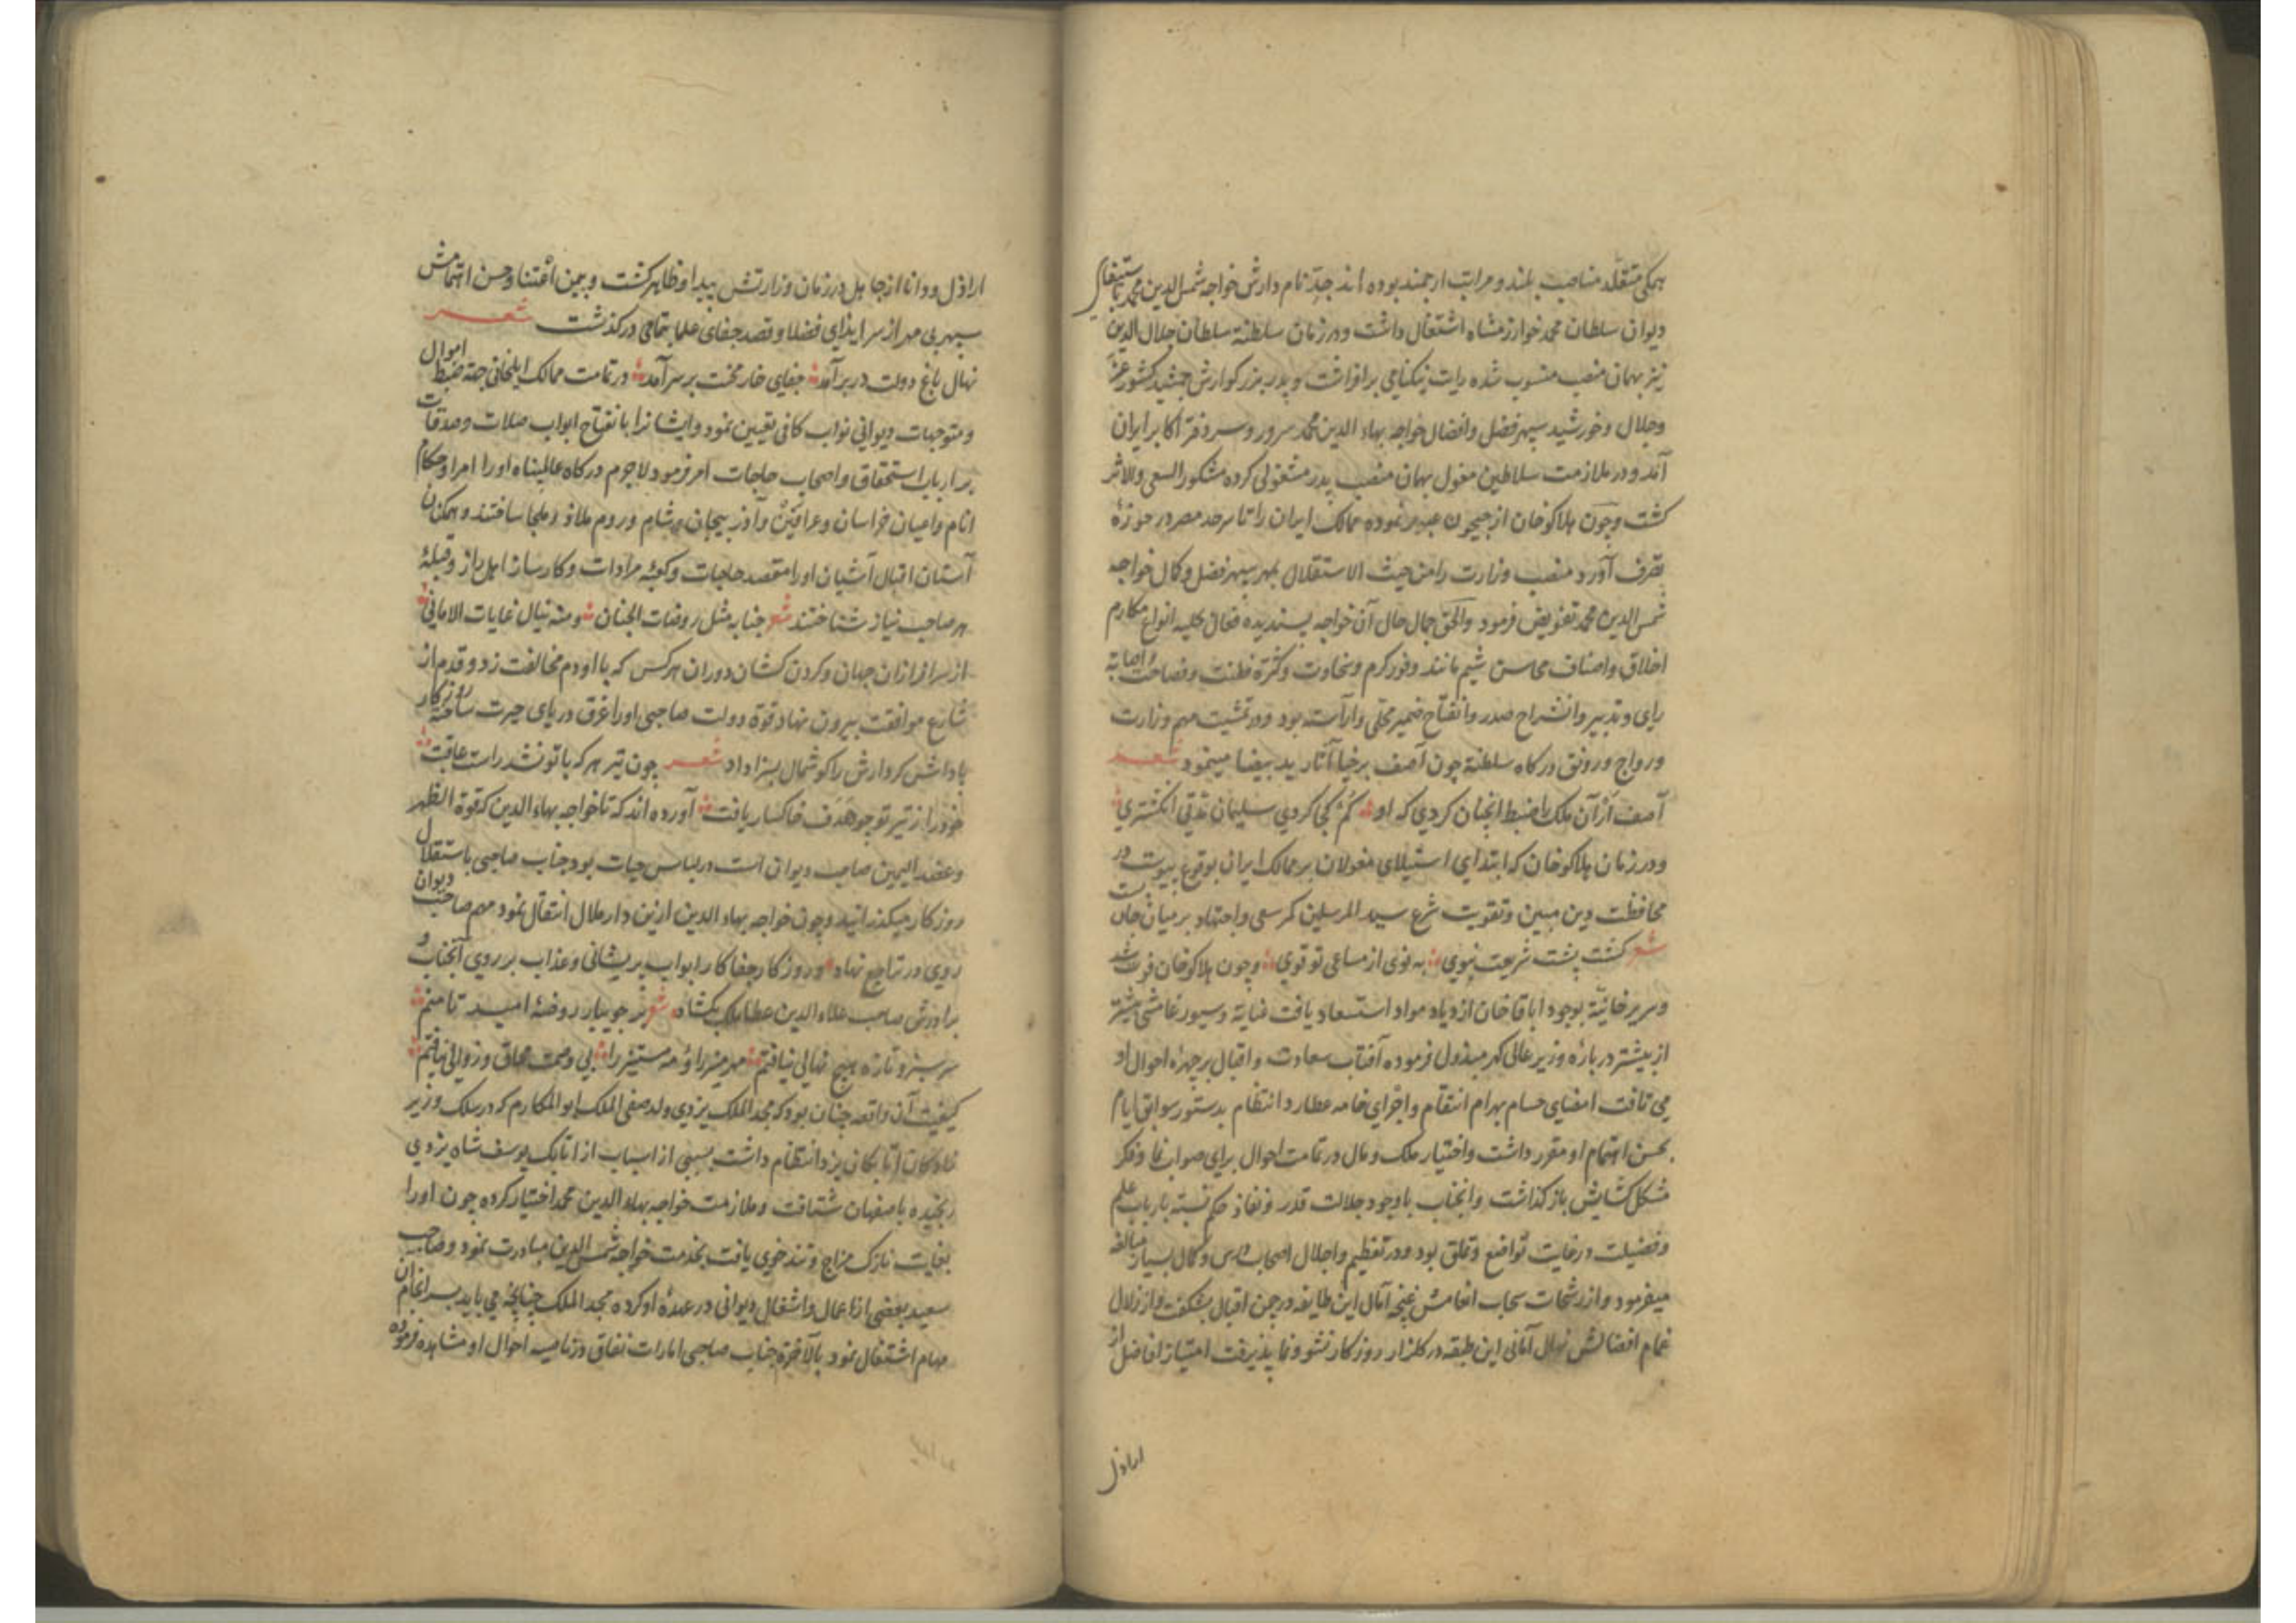 همکی متقلد مناصب بلند و مراتب ارجمند بوده اند جد نام دارش خواجه شمس الدین محمد باستیفای
دیوان سلطان محمد خوارزمشاه اشتغال داشت و در زمان سلطنة سلطان جلال الدین
نیز بهمان منصب منسوب شده رایت نیکنامی برافراشت و پدر بزرکوارش جمشید کشور عز
و جلال و خورشید سپهر فضل و افضال خواجه بهاء الدین محمد سرور و سر دفتر اکابر ایران
آمد و در ملازمت سلاطین مغول بهمان منصب پدر مشغولی کرده مشکور السعی والاثر
کشت و چون هلاکو خان از جیحون عبور نموده ممالک ایران را تا سرحد مصر در حوزهٔ
تصرف آورد منصب وزارت را من حیث الاستقلال بمهر سپهر فضل و کمال خواجه
شمس الدین محمد تفویض فرمود والحق جمال حال آن خواجه پسندیده فعال بحلیه انواع مکارم
اخلاق و اصناف محاسن شیم مانند وفور کرم و سخاوت و کثرة فطنت و فصاحت و اصابة
رای و تدبیر و انشراح صدر و انفتاح ضمیر محلی و آراسته بود و در تمشیت مهم وزارت
و رواج و رونق درکاه سلطنة چون آصف برخیا آثار ید بیضا مینمود شعر
آصف ار آن ملک را ضبط انچنان کردی که او کم کجی کردی سلیمان مدتی انکشتری
و در زمان هلاکو خان که ابتدای استیلای مغولان بر ممالک ایران بوقوع پیوست در
محافظت دین مبین و تقویت شرع سید المرسلین کمر سعی و اجتهاد بر میان جان بست
شعر کشت پشت شریعت نبوی به قوی از مساعی تو قوی و چون هلاکو خان فوت شد
و سریر خانیّة بوجود اباقا خان ازدیاد مواد استسعاد یافت عنایة و سیورغامشی بیشتر
از پیشتر در بارهٔ وزیر عالی کهر مبذول فرموده آفتاب سعادت و اقبال بر چهرهٔ احوال او
می تافت امضای حسام بهرام انتقام و اجرای خامه عطارد انتظام بدستور سوابق ایام
بحسن اهتمام او مقرر داشت و اختیار ملک و مال در تمامت احوال برای صواب نما و فکر
مشکل کشایش باز کذاشت و انجناب باوجود جلالت قدر و نفاذ حکم نسبة بارباب علم
و فضیلت در غایت تواضع و تملق بود و در تعظیم و اجلال اصحاب درس و کمال بسیار مبالغه
میفرمود و از رشحات سحاب انعامش غنچه آمال این طایفه در چمن اقبال بشکفت و از زلال
غمام افضالش نهال آمانی این طبقه در کلزار روزکار نشو و نما پذیرفت امتیاز افاضل از
اراذل
اراذل و دانا از جاهل در زمان وزارتش پیدا و ظاهر کشت و بیمن اعتنا و حسن اهتمامش
سپهر بی مهر از سر ایذای فضلا و قصد جفای علما بتمامی درکذشت شعر
نهال باغ دولت در بر آمد جفای خار محنت بر سر آمد در تمامت ممالک ایلخانی جهة ضبط اموال
و متوجهات دیوانی نواب کافی تعیین نمود و ایشانرا بانفتاح ابواب صلات و صدقات
بر ارباب استحقاق و اصحاب حاجات امر فرمود لاجرم درکاه عالمپناه اورا امرا و حکام
انام و اعیان خراسان و عراقین و آذربیجان و شام و روم ملاذ و ملجا ساختند و همکنان
آستان اقبال آشیان اورا مقصد حاجات و کعبهٔ مرادات و کارساز اهل راز و قبلهٔ
هر صاحب نیاز شناختند شعر جنابه مثل روضات الجنان و منه نیال غایات الامانی
از سرافرازان جهان و کردن کشان دوران هر کس که با او دم مخالفت زد و قدم از
شارع موافقت بیرون نهاد قوة دولت صاحبی اورا غرق دریای حیرت ساخته روزکار
پاداش کردارش را کوشمال بسزا داد شعر چون تیر هر که با تو نشد راست عاقبت
خود را ز تیر تو چو هدف خاکسار یافت آورده اند که تا خواجه بهاء الدین که قوة الظهر
و عضد الیمین صاحب دیوان است در لباس حیات بود جناب صاحبی باستقلال
روزکار میکذرانید و چون خواجه بهاء الدین ازین دار ملال انتقال نمود مهم صاحب دیوان
روی در تراجع نهاد و روزکار جفاکار ابواب پریشانی و عذاب بر روی آنجناب و
برادرش صاحب علاء الدین عطا ملک بکشاد شعر بر جویبار روضهٔ امید تا منم
سرسبز و تازه هیچ نهالی نیافتم مهر منیر را و مه مستنیر را بی وصمت محاق و زوالی نیافتم
کیفیت آن واقعه چنان بود که مجد الملک یزدی ولد صفی الملک ابو المکارم که در سلک وزیر
زادکان اتابکان یزد انتظام داشت بسببی از اسباب از اتابک یوسف شاه یزدی
رنجیده باصفهان شتافت و ملازمت خواجه بهاء الدین محمد اختیار کرده چون اورا
بغایت نازک مزاج و تند خوی یافت بخدمت خواجه شمس الدین مبادرت نمود و صاحب
سعید بعضی از اعمال و اشغال دیوانی در عهدهٔ او کرده مجد الملک چنانچه می باید بسر انجام آن
مهام اشتغال نمود بالآخرة جناب صاحبی امارات نفاق در ناصیه احوال او مشاهده فرموده